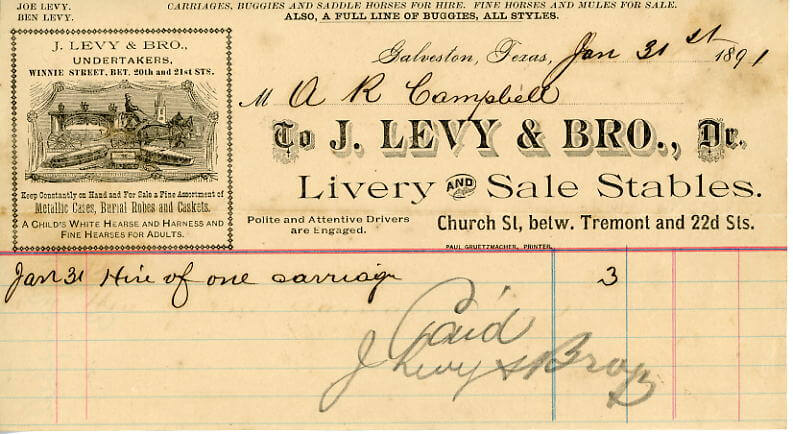 JOE LEVY.
BEN LEVY.
CARRIAGES, BUGGIES AND SADDLE HORSES FOR HIRE. FINE HORSES AND MULES FOR SALE.
ALSO, A FULL LINE OF BUGGIES, ALL STYLES.
J. LEVY & BRO.,
UNDERTAKERS,
WINNIE STREET, BET. 20th AND 21st STS.
Keep Constantly on Hand and For Sale a Fine Assortment of
Metallic Cases, Burial Robes and Caskets.
A CHILD'S WHITE HEARSE AND HARNESS AND
FINE HEARSES FOR ADULTS.
Galveston, Texas, Jan 31st 1891
M A R Campbell
To J. LEVY & BRO., Dr.
Livery AND Sale Stables.
Polite and Attentive Drivers
are Engaged.
Church St, betw. Tremont and 22d Sts.
PAUL GRUETZMACHER, PRINTER,
Jan 31 Hire of one carriage 3
Paid
J Levy & Bro